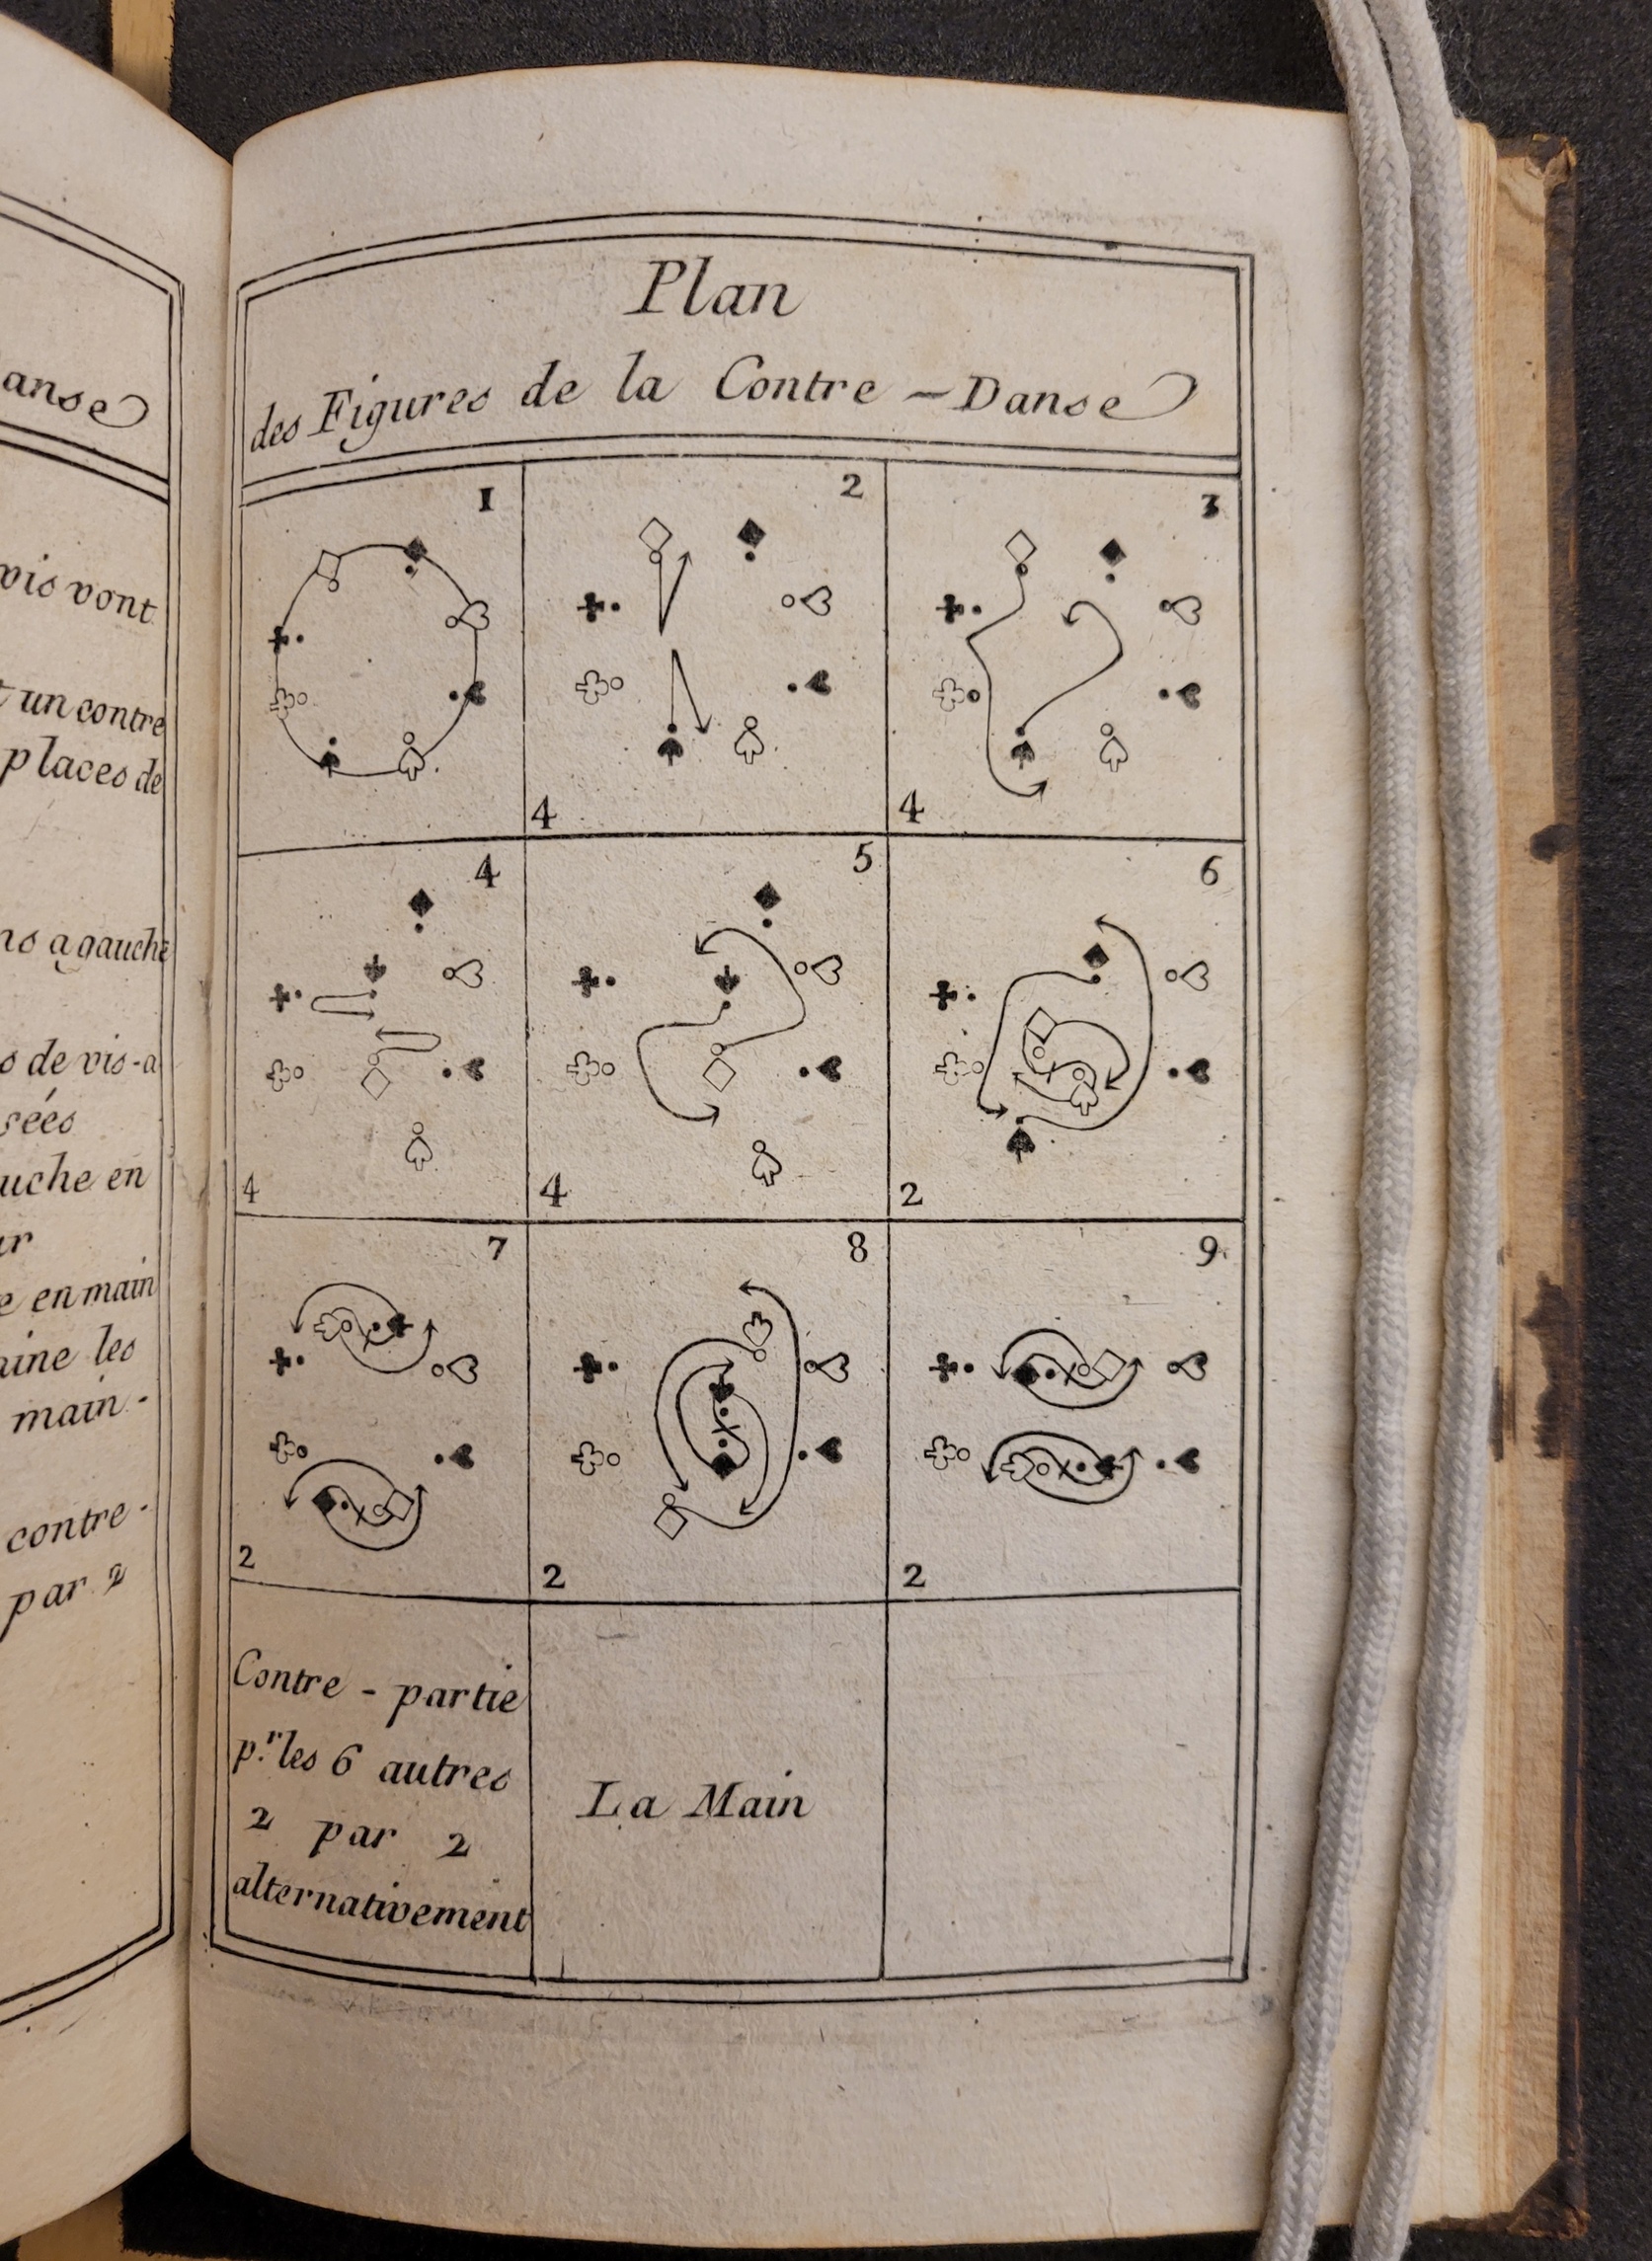 anse
vis vont
un contre
places de
a gauche
de vis-a
sées
uche en
en main
les
main-
contre-
par 2
Plan
des Figures de la Contre-Danse
1
2
4
3
4
4
4
5
4
6
2
7
2
8
2
9
2
Contre-partie
p.r les 6 autres
2 par 2
alternativement
La Main